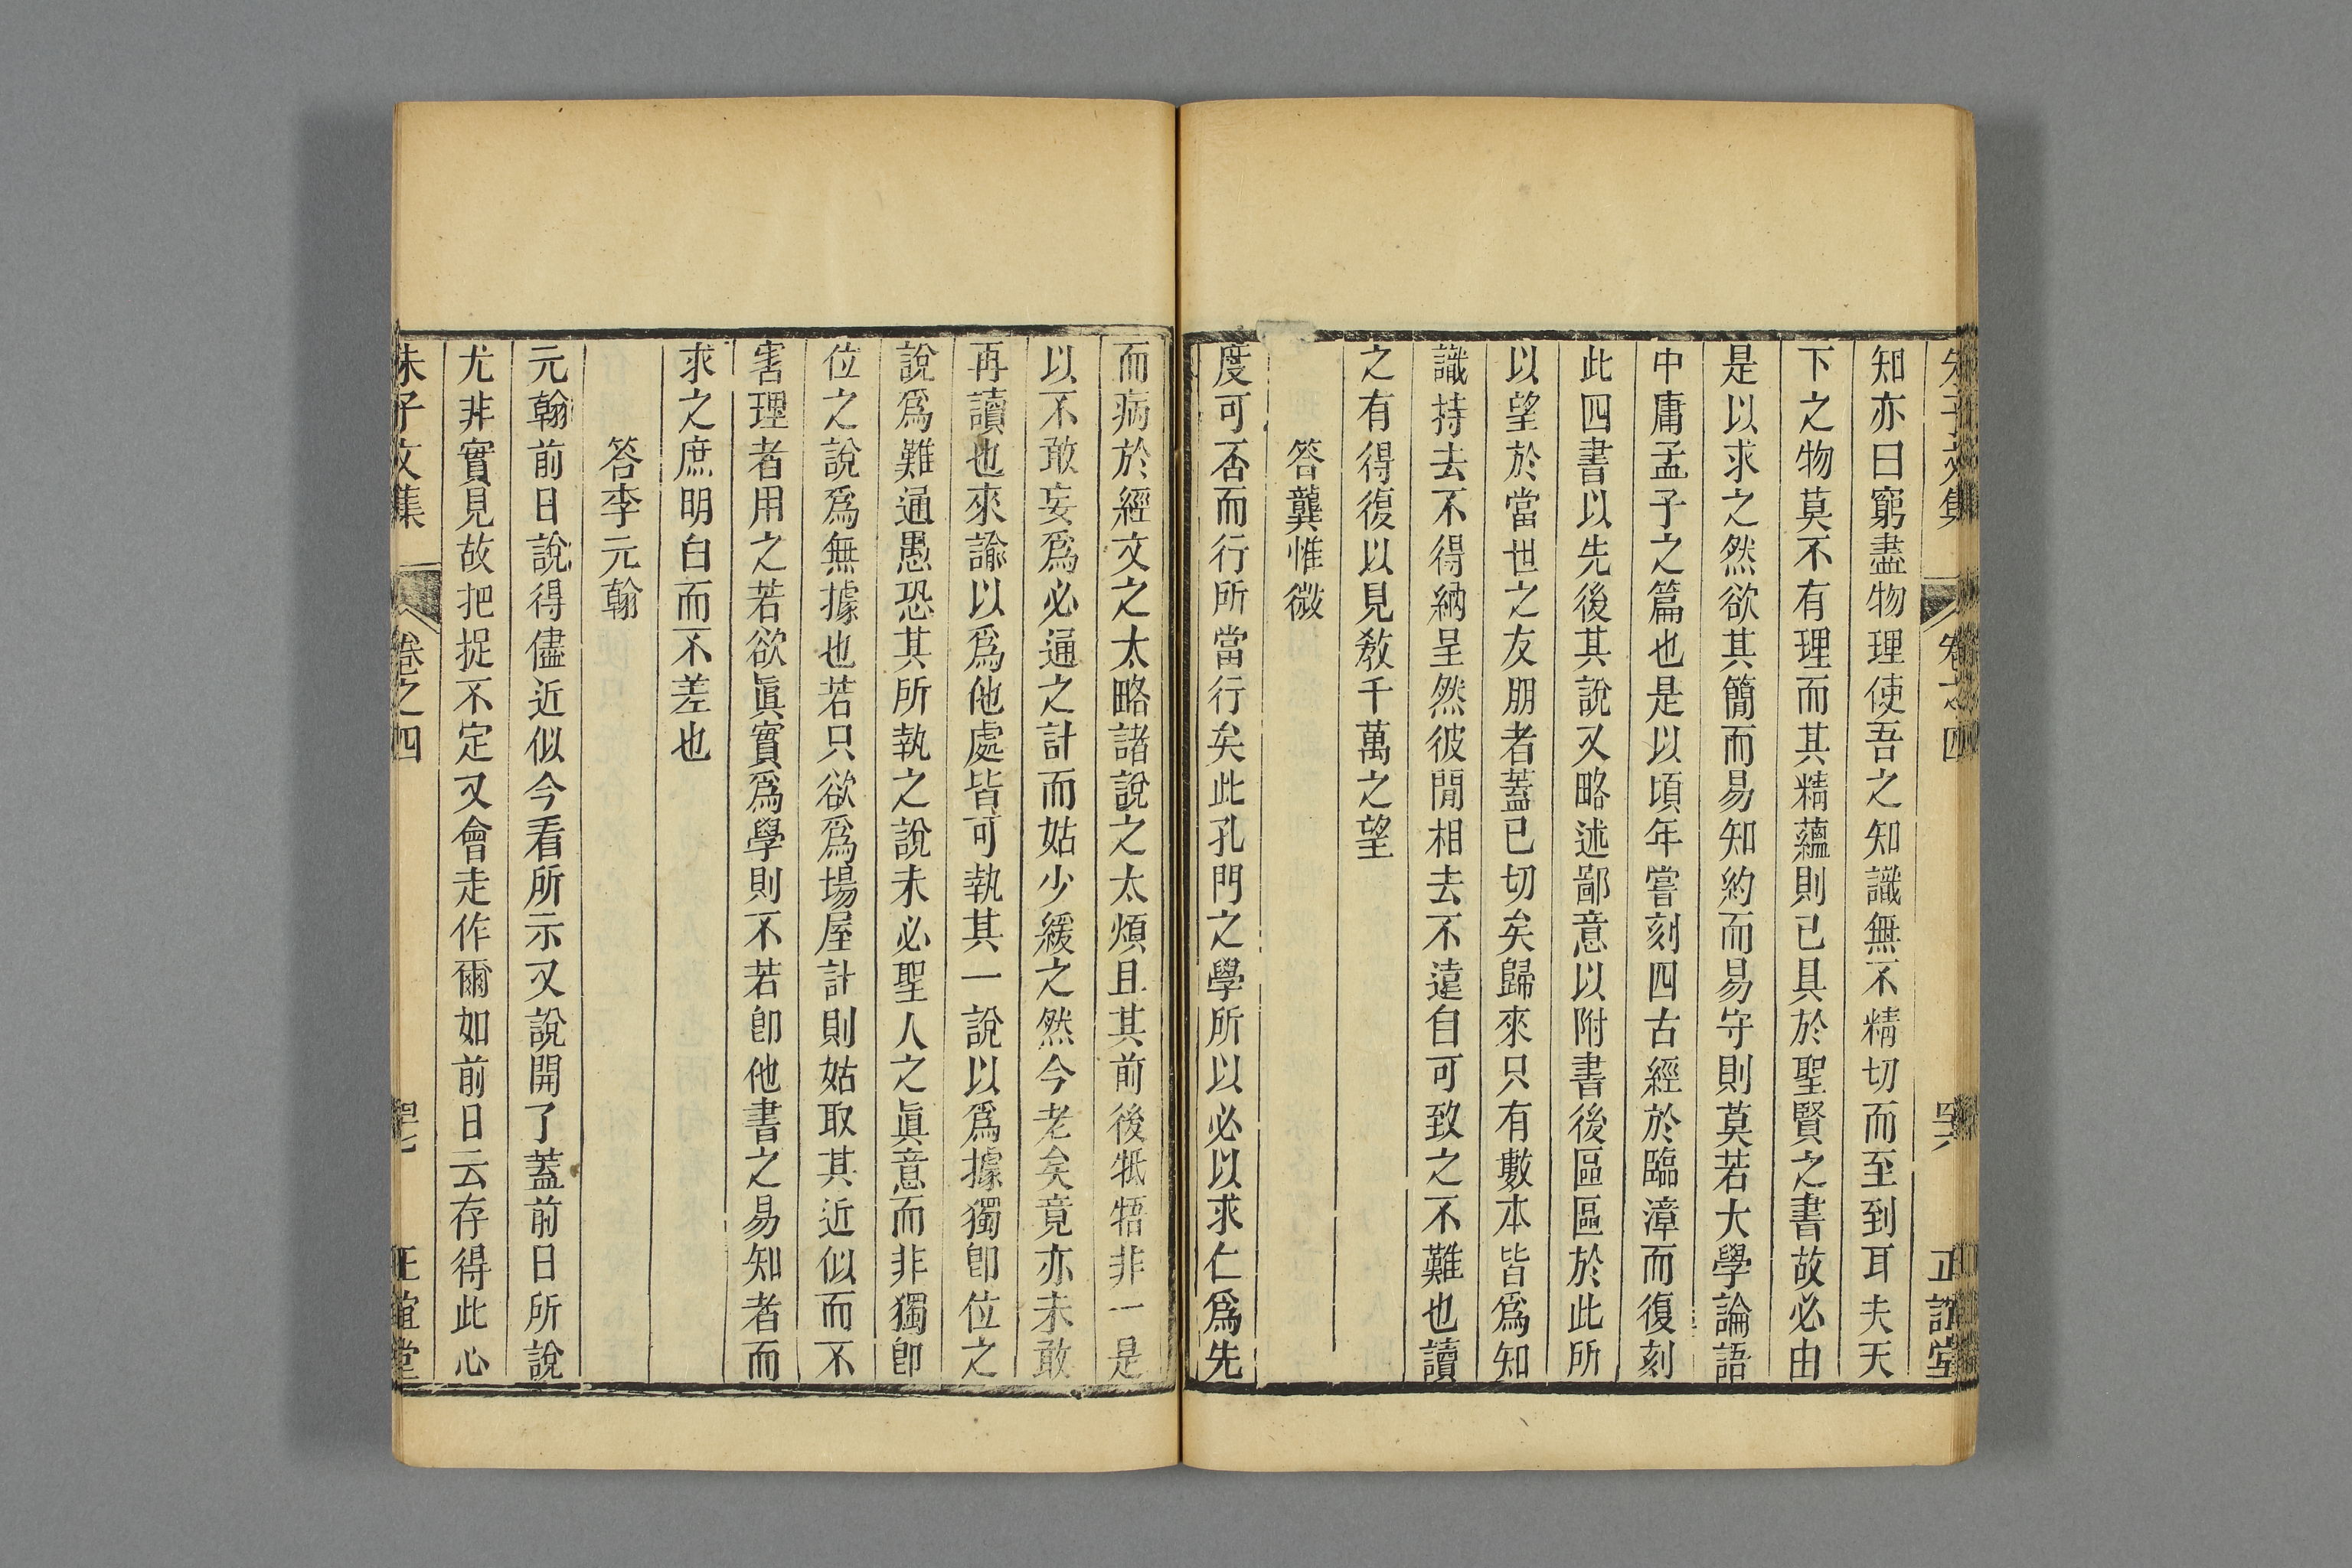 朱子文集 卷之四 四六 正誼堂
知亦曰窮盡物理使吾之知識無不精切而至到耳夫天
下之物莫不有理而其精蘊則已具於聖賢之書故必由
是以求之然欲其簡而易知約而易守則莫若大學論語
中庸孟子之篇也是以頃年嘗刻四古經於臨漳而復刻
此四書以先後其說又略述鄙意以附書後區區於此所
以望於當世之友朋者蓋已切矣歸來只有數本皆爲知
識持去不得納呈然彼閒相去不遠自可致之不難也讀
之有得復以見敎千萬之望
答龔惟微
度可否而行所當行矣此孔門之學所以必以求仁爲先
而病於經文之太略諸說之太煩且其前後牴牾非一是
以不敢妄爲必通之計而姑少緩之然今老矣竟亦未敢
再讀也來諭以爲他處皆可執其一說以爲據獨卽位之
說爲難通愚恐其所執之說未必聖人之眞意而非獨卽
位之說爲無據也若只欲爲場屋計則姑取其近似而不
害理者用之若欲眞實爲學則不若卽他書之易知者而
求之庶明白而不差也
答李元翰
元翰前日說得儘近似今看所示又說開了蓋前日所說
尤非實見故把捉不定又會走作爾如前日云存得此心
朱子文集 卷之四 四七 正誼堂